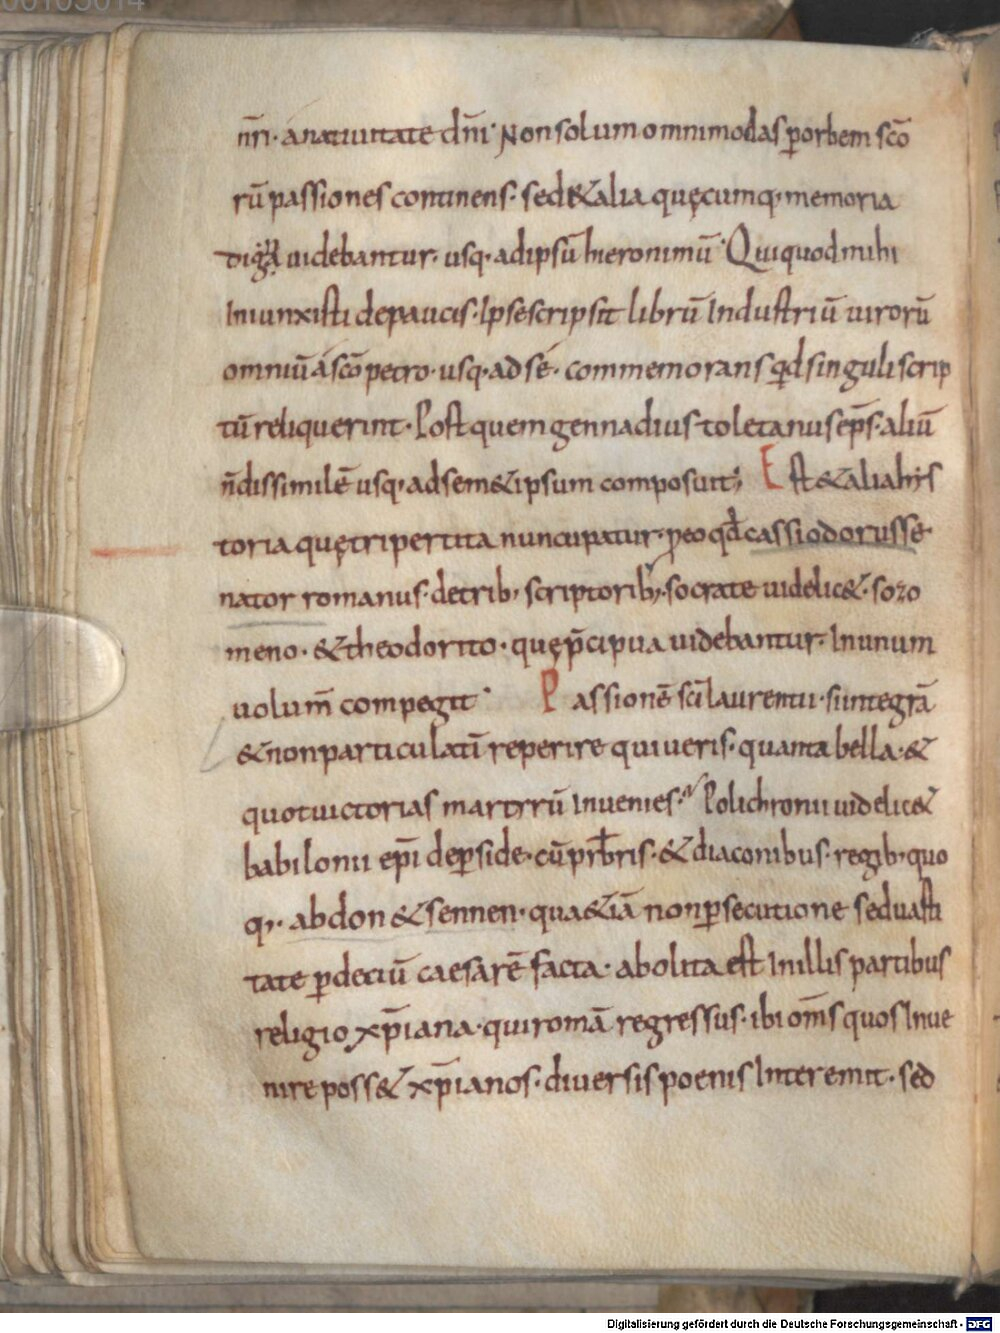 nr̄i· anatiuitate dn̄i· Non solum omnimodas ꝑorbem scō
rū passiones continens· sed & alia quęcumq; memoria
digna uidebantur· usq· adipsū hieronimū· Quiquod mihi
Iniunxisti depaucis· Ipse scripsit librū Industriū uirorū
omniū a scō petro· usq· ad sé· commemorans qd̄ singuli scrip
tū reliquerint· Post quem gennadius toletanus ep̄s· aliū
n̄ dissimilē usq· ad sem& ipsum composuit; Est & alia his
toria quę tripertita nuncupatur· ꝓeo qd̄ cassiodorus se
nator romanus· detrib; scriptorib;· socrate uidelic&· sozo
meno· & theodorito· quę p̄cipua uidebantur· In unum
uolum̄ compegit· Passionē sc̄i laurentii· si integrā
& non particulatī reperire quiueris· quanta bella· &
quot uictorias martyrū Inuenies· Polichronii uidelic&
babilonii ep̄i de ꝑside· cū prb̄ris· & diaconibus· regib; quo
q;· abdon & sennen· qua &iā non ꝑsecutione sed uasti
tate ꝑ deciū caesarē facta· abolita est In illis partibus
religio xp̄iana· qui romā regressus· ibi om̄s quos Inue
nire poss& xp̄ianos· diuersis poenis Interemit· sed
Digitalisierung gefördert durch die Deutsche Forschungsgemeinschaft - DFG